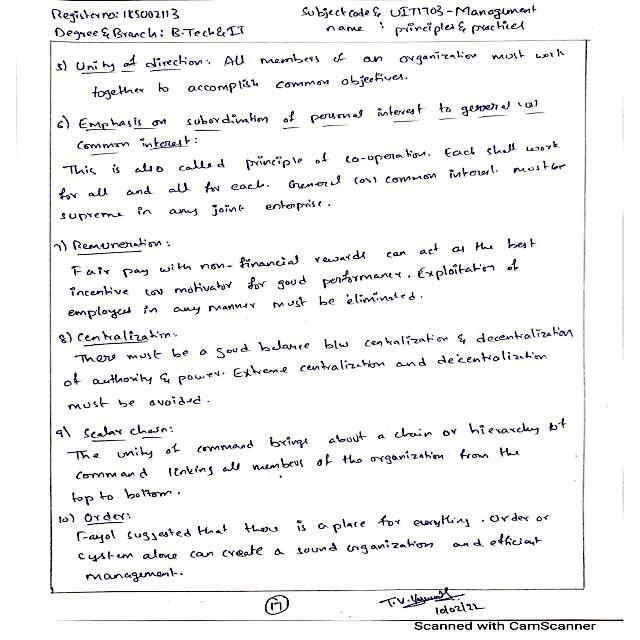 Register no: 1KS002113
Subject code & UITI703 - Management
Degree & Branch: B.Tech & IT
name : principles & practices
5) Unity of direction: All members of an organization must work
together to accomplish common objectives.
6) Emphasis on subordination of personal interest to general (or)
common interest:
This is also called principle of co-operation. Each shall work
for all and all for each. General (or) common interest must be
supreme in any joint enterprise.
7) Remuneration:
Fair pay with non-financial rewards can act as the best
incentive (or) motivator for good performance. Exploitation of
employees in any manner must be eliminated.
8) Centralization:
There must be a good balance b/w centralization & decentralization
of authority & power. Extreme centralization and decentralization
must be avoided.
9) Scalar chain:
The unity of command brings about a chain or hierarchy of
command linking all members of the organization from the
top to bottom.
10) Order:
Fayol suggested that there is a place for everything. Order or
system alone can create a sound organization and efficient
management.
17
T.V.
10/02/22
Scanned with CamScanner